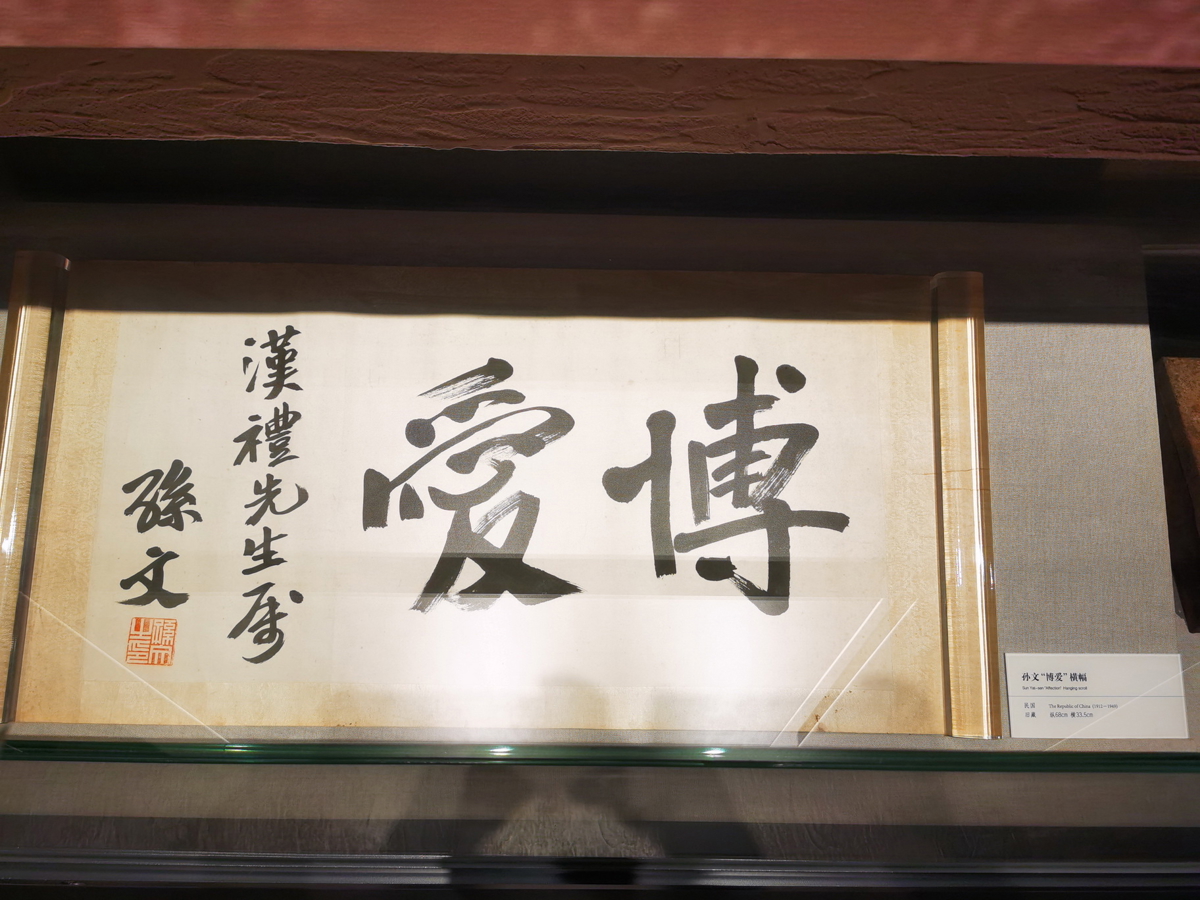 博愛
漢禮先生属
孫文
孫文之印
孙文“博爱”横幅
Sun Yat-sen "Affection" Hanging scroll
民国 The Republic of China (1912—1949)
旧藏 纵68cm 横33.5cm